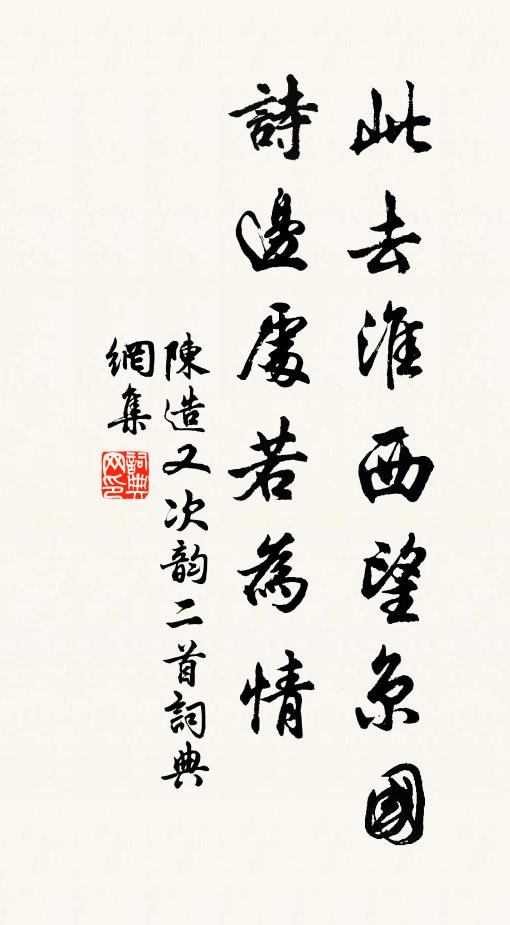 此去淮西望京國
詩邊處若為情
陳造又次韵二首詞典
網集
詞典網印